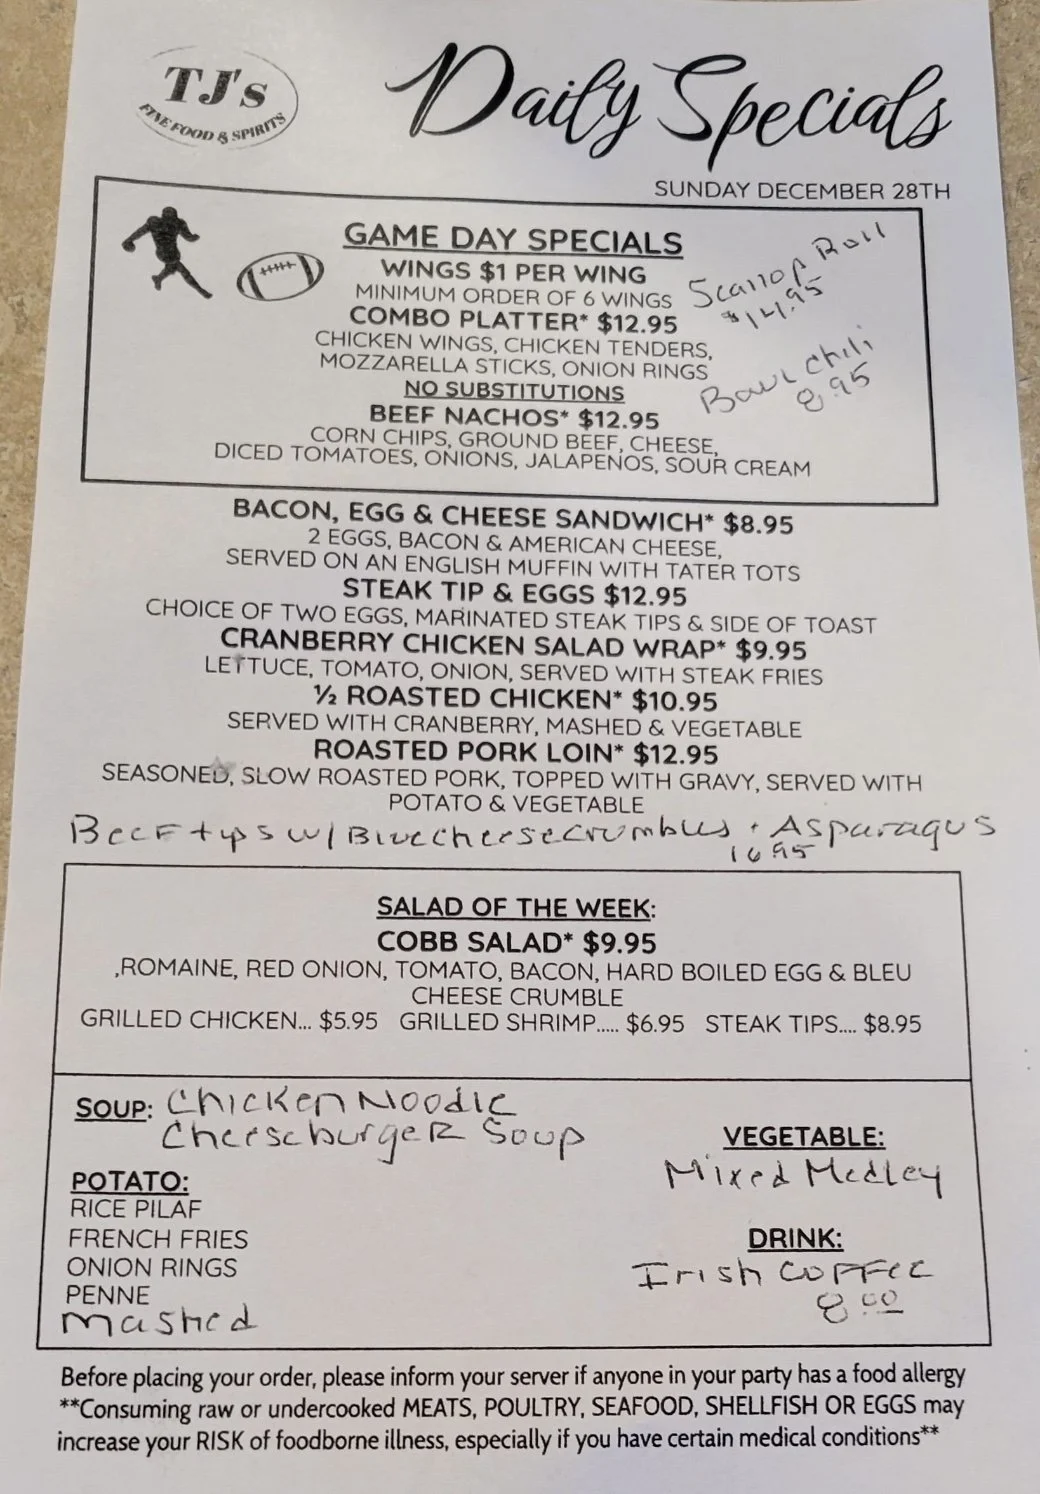 TJ's
FINE FOOD & SPIRITS
Daily Specials
SUNDAY DECEMBER 28TH
GAME DAY SPECIALS
WINGS $1 PER WING
MINIMUM ORDER OF 6 WINGS
COMBO PLATTER* $12.95
CHICKEN WINGS, CHICKEN TENDERS,
MOZZARELLA STICKS, ONION RINGS
NO SUBSTITUTIONS
BEEF NACHOS* $12.95
CORN CHIPS, GROUND BEEF, CHEESE,
DICED TOMATOES, ONIONS, JALAPENOS, SOUR CREAM
Scallop Roll
$14.95
Bowl Chili
8.95
BACON, EGG & CHEESE SANDWICH* $8.95
2 EGGS, BACON & AMERICAN CHEESE,
SERVED ON AN ENGLISH MUFFIN WITH TATER TOTS
STEAK TIP & EGGS $12.95
CHOICE OF TWO EGGS, MARINATED STEAK TIPS & SIDE OF TOAST
CRANBERRY CHICKEN SALAD WRAP* $9.95
LETTUCE, TOMATO, ONION, SERVED WITH STEAK FRIES
½ ROASTED CHICKEN* $10.95
SERVED WITH CRANBERRY, MASHED & VEGETABLE
ROASTED PORK LOIN* $12.95
SEASONED, SLOW ROASTED PORK, TOPPED WITH GRAVY, SERVED WITH
POTATO & VEGETABLE
Beef tips w/ Bluecheese crumbles + Asparagus
16.95
SALAD OF THE WEEK:
COBB SALAD* $9.95
,ROMAINE, RED ONION, TOMATO, BACON, HARD BOILED EGG & BLEU
CHEESE CRUMBLE
GRILLED CHICKEN... $5.95 GRILLED SHRIMP..... $6.95 STEAK TIPS.... $8.95
SOUP: Chicken Noodle
Cheeseburger Soup
VEGETABLE:
Mixed Medley
POTATO:
RICE PILAF
FRENCH FRIES
ONION RINGS
PENNE
mashed
DRINK:
Irish Coffee
8.00
Before placing your order, please inform your server if anyone in your party has a food allergy
**Consuming raw or undercooked MEATS, POULTRY, SEAFOOD, SHELLFISH OR EGGS may
increase your RISK of foodborne illness, especially if you have certain medical conditions**